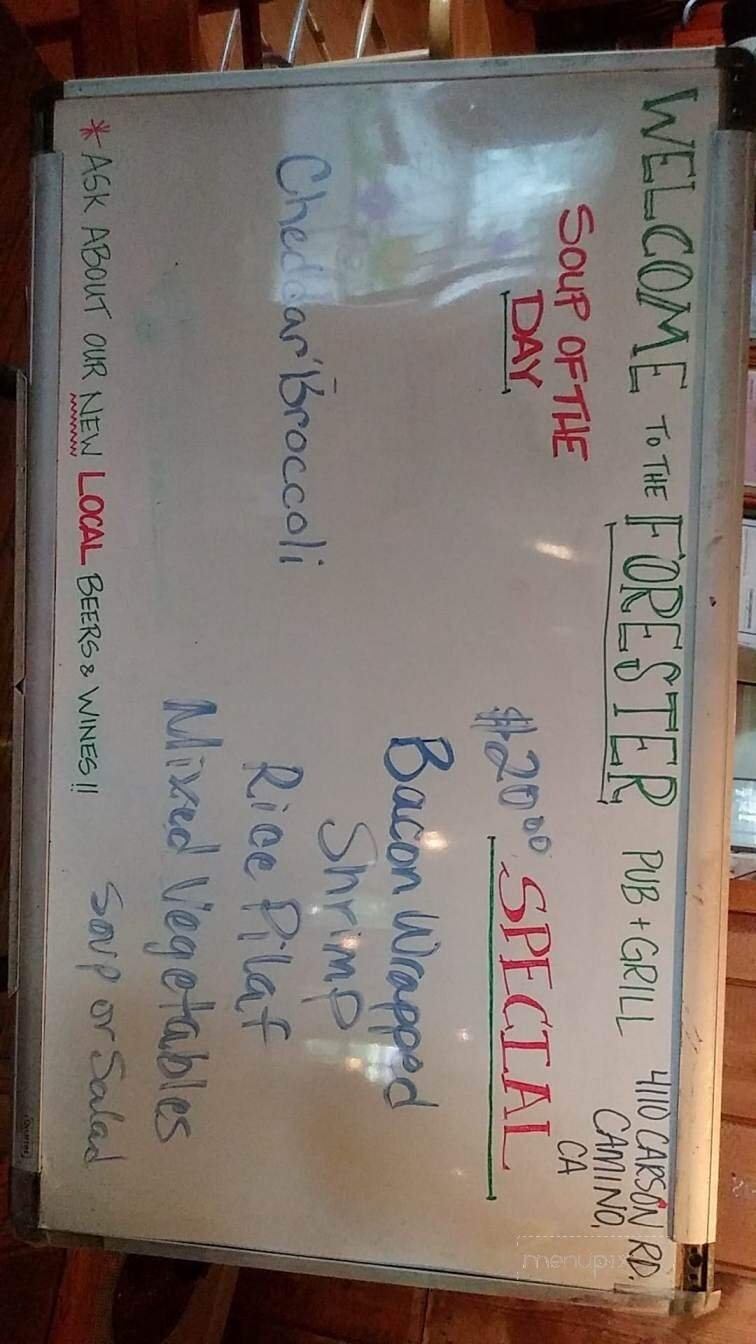 WELCOME TO THE FORESTER PUB + GRILL
4110 CARSON RD.
CAMINO,
CA
SOUP OF THE
DAY
Cheddar Broccoli
$20.00 SPECIAL
Bacon Wrapped
Shrimp
Rice Pilaf
Mixed Vegetables
Soup or Salad
* ASK ABOUT OUR NEW LOCAL BEERS & WINES!!
menupix